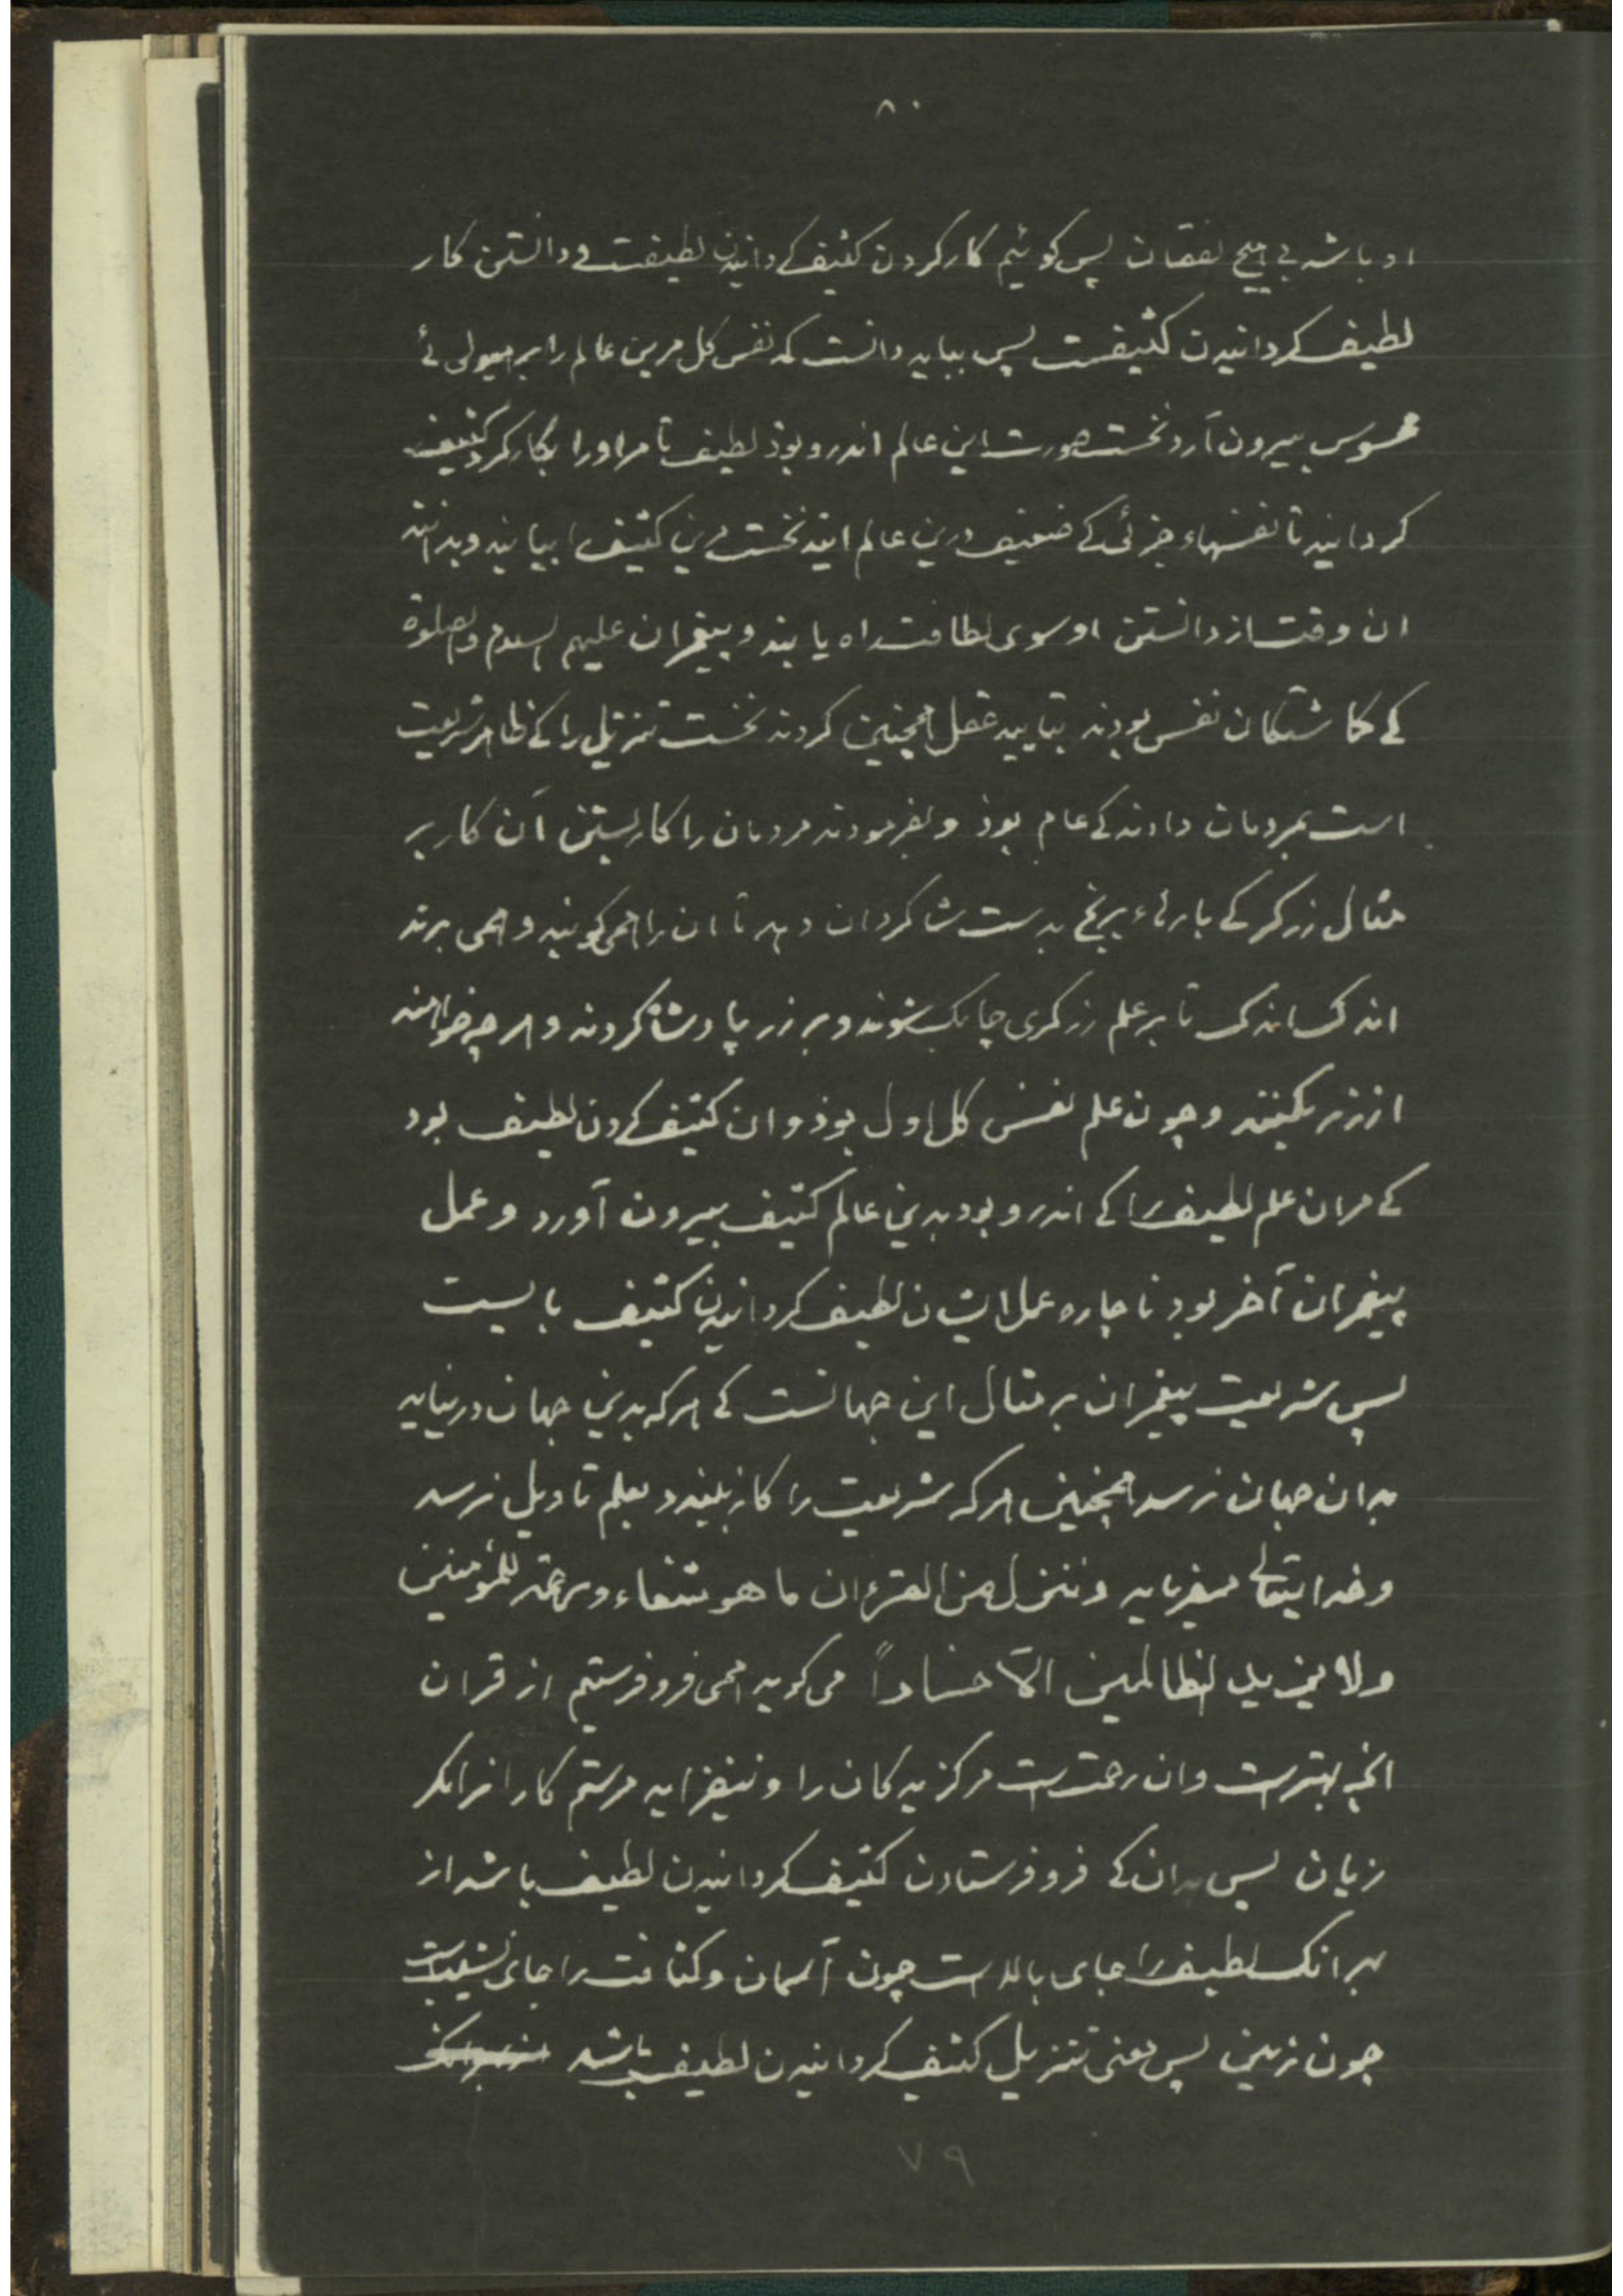 ۸۰
او باشد بی هیچ نقصان پس کوئیم کار کردن کثیف کردانیدن لطیفت و دانستن کار
لطیف کردانیدن کثیفست پس بباید دانست که نفس کل مرین عالم را بر هیولی ئ
محسوس بیرون آرد نخست صورت این عالم اندرو بوذ لطیف تا مر اورا بکار کرد کثیف
کردانید تا نفسهاء جزئی کے ضعیف درین عالم ایند نخست مرین کثیف را بیابند و بدانند
ان وقت از دانستن او سوی لطافت راه یابند و پیغمبران علیهم السلام والصلوة
کے کماشتکان نفس بودند بتایید عقل همچنین کردند نخست تنزیل را کے ظاهر شریعت
است بمردمان دادند کے عام بوذ و بفرمودند مردمان را کار بستن آن کار بر
مثال زرکر کے بارهٔاء برنج بدست شاکردان دهد تا ان را همی کوبند و همی برند
اندک اندک تا بر علم زرکری چابک شوند و بر زر پادشاه کردند و هر چه خواهند
از زر بکنند و چون علم نفس کل اول بوذ و ان کثیف کردن لطیف بود
کے مران علم لطیف را کے اندرو بود بدین عالم کثیف بیرون آورد و عمل
پیغمبران آخر بود ناچاره عمل ایشان لطیف کردانیدن کثیف بایست
پس شریعت پیغمبران بر مثال این جهانست کے هر که بدین جهان در نیاید
بدان جهان نرسد همچنین هر که شریعت را کار نبندد بعلم تاویل نرسد
و خدایتعالے میفرماید وننزل من القرءان ما هو شفاء ورحمة للمؤمنین
ولا یزید الظالمین الّا خساراً می کوید همی فرو فرستیم از قران
انچه بهترست وان رحمت است مرکزیدکان را و نیفزاید مرستم کارانرا مکر
زیان پس بدان کے فرو فرستادن کثیف کردانیدن لطیف باشد از
بهر انک لطیف را جای بالاست چون آسمان و کثافت را جای نشیبست
چون زمین پس معنی تنزیل کثیف کردانیدن لطیف باشد
۷۹